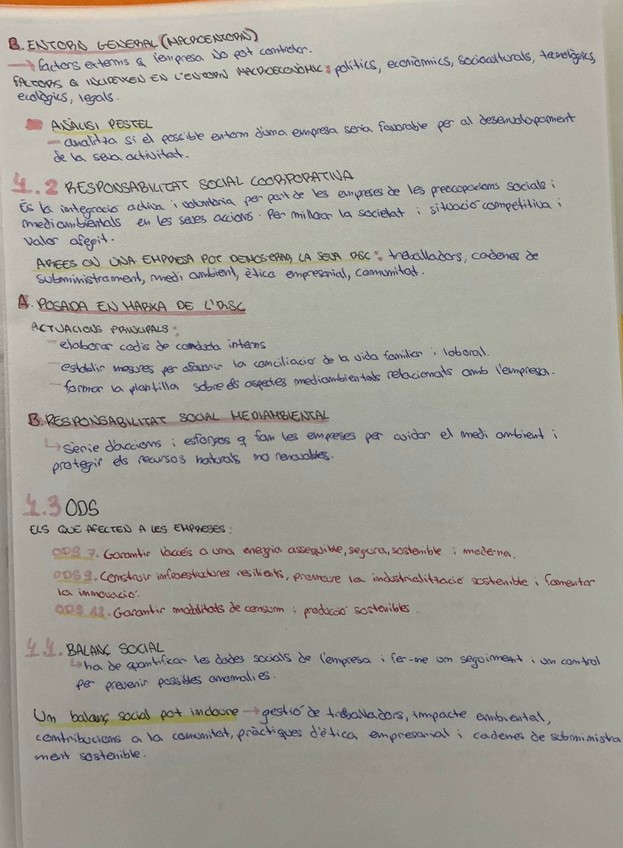 B. ENTORN GENERAL (MACROENTORN)
→ factors externs q l'empresa no pot controlar.
FACTORS Q INCIDEIXEN EN L'ENTORN MACROECONÒMIC: polítics, econòmics, socioculturals, tecnològics,
ecològics, legals.
ANÀLISI PESTEL
- analitza si el possible entorn d'una empresa seria favorable per al desenvolupament
de la seva activitat.
4.2 RESPONSABILITAT SOCIAL COORPORATIVA
És la integració activa i voluntària per part de les empreses de les preocupacions socials i
mediambientals en les seves accions. Per millorar la societat i situació competitiva i
valor afegit.
ÀREES ON UNA EMPRESA POT DEMOSTRAR LA SEVA RSC: treballadors, cadenes de
subministrament, medi ambient, ètica empresarial, comunitat.
A. POSADA EN MARXA DE L'RSC
ACTUACIONS PRINCIPALS:
- elaborar codis de conducta interns
- establir mesures per afavorir la conciliació de la vida familiar i laboral.
- formar la plantilla sobre els aspectes mediambientals relacionats amb l'empresa.
B. RESPONSABILITAT SOCIAL MEDIAMBIENTAL
↳ sèrie d'accions i esforços q fan les empreses per cuidar el medi ambient i
protegir els recursos naturals no renovables.
4.3 ODS
ELS QUE AFECTEN A LES EMPRESES:
ODS 7. Garantir l'accés a una energia assequible, segura, sostenible i moderna.
ODS 9. Construir infraestructures resilients, promoure la industrialització sostenible i fomentar
la innovació.
ODS 12. Garantir modalitats de consum i producció sostenibles.
4.4. BALANÇ SOCIAL
↳ ha de quantificar les dades socials de l'empresa i fer-ne un seguiment i un control
per prevenir possibles anomalies.
Un balanç social pot incloure → gestió de treballadors, impacte ambiental,
contribucions a la comunitat, pràctiques d'ètica empresarial i cadenes de subministra
ment sostenible.